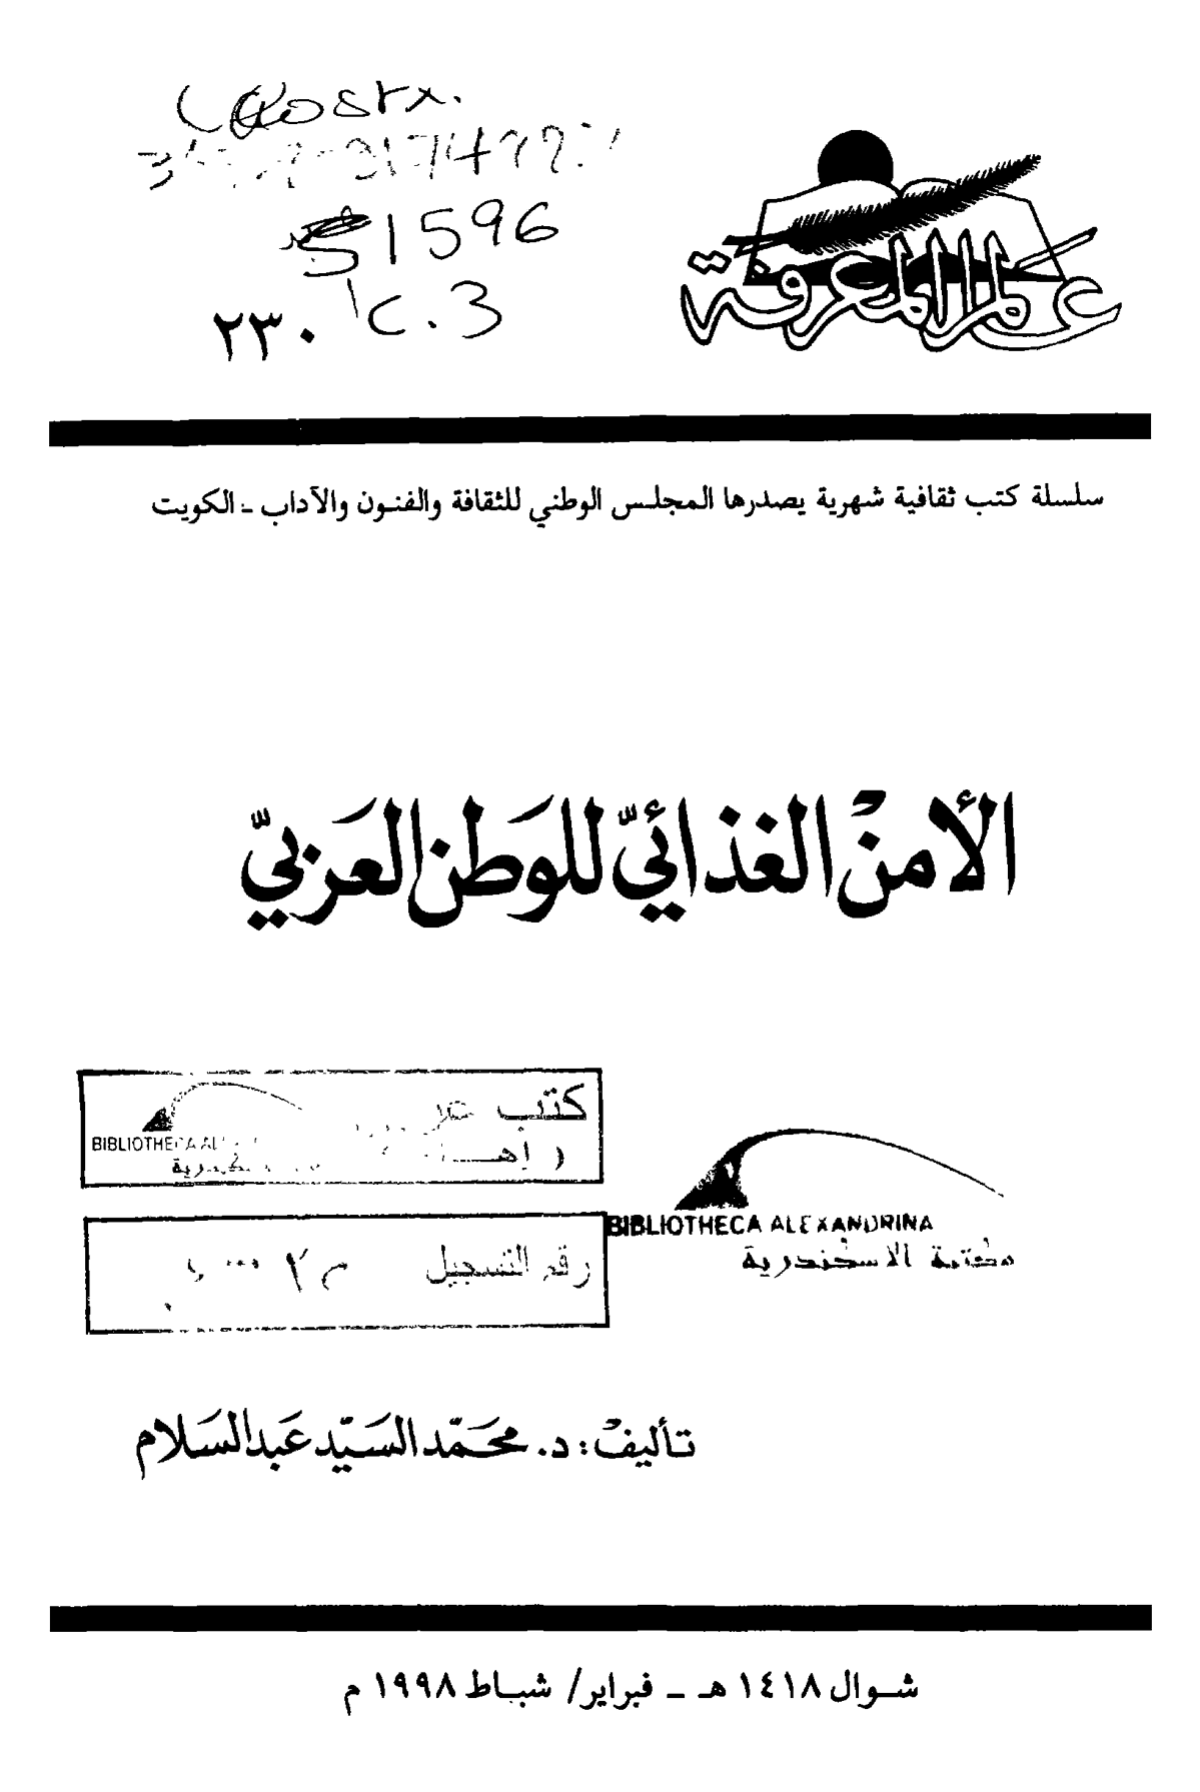 عالم المعرفة
1596
c.3
٢٣٠
سلسلة كتب ثقافية شهرية يصدرها المجلس الوطني للثقافة والفنون والآداب ـ الكويت
الأمنْ الغذائيّ للوَطن العَربيّ
كتب
BIBLIOTHECA AL
BIBLIOTHECA ALEXANDRINA
مكتبة الاسكندرية
رقم التسجيل
تأليفْ : د. محمَّد السَيّد عَبد السَلام
شوال ١٤١٨ هـ ـ فبراير/ شباط ١٩٩٨ م